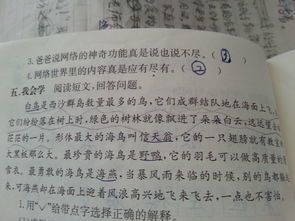 3.爸爸说网络的神奇功能真是说也说不尽。( ③ )
4.网络世界里的内容真是应有尽有。( ② )
五、我会学 阅读短文,回答问题。
白鸟是西沙群岛数量最多的鸟,它们成群结队地在海面上飞
它们纷纷落在树上时,绿色的树林就像飘进了朵朵白云,远远望
花花的一片。形体最大的海鸟叫信天翁,它的一只翅膀就有教室
大黑板那么大。最珍贵的海鸟是野鸭,它的羽毛可以做高质量的
雪衣。最勇敢的海鸟是海燕,当暴风雨来临的时候,别的鸟都躲
来,可海燕却在海面上迎着风浪高兴地飞来飞去,一点也不害怕。
1.用“✓”给带点字选择正确的解释。